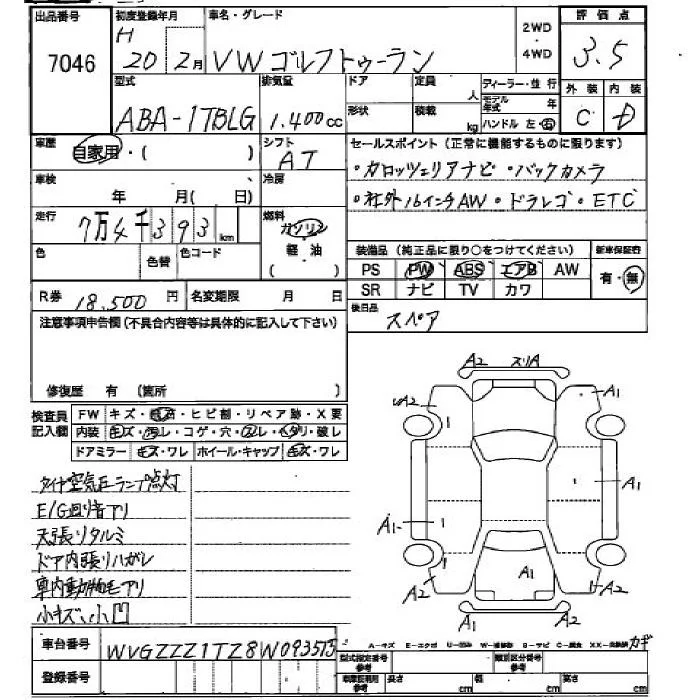 出品番号 初度登録年月 車名・グレード 2WD・4WD 評価点
7046 H 20 2月 VW ゴルフトゥーラン 3.5
型式 排気量 ドア 定員 人 ディーラー・並行 外装 内装
ABA-1TBLG 1.400cc 形状 積載 kg モデル年式 年 C D
ハンドル 左・右
車歴 自家用・( ) シフト AT セールスポイント(正常に機能するものに限ります)
・カロッツェリアナビ・バックカメラ
車検 年 月( 日) 冷房 ・社外16インチAW・ドラレコ・ETC
走行 7万4千393km 燃料 ガソリン 軽油 ( )
色 色替 色コード 装備品(純正品に限り○をつけてください) 新車保証書
PS PW ABS エアB AW 有・無
R券 18,500円 名変期限 月 日 SR ナビ TV カワ
注意事項申告欄(不具合内容等は具体的に記入して下さい) 後日品 スペア
修復歴 有 (箇所 )
検査員記入欄 FW キズ・飛石・ヒビ割・リペア跡・X要
内装 キズ・汚レ・コゲ・穴・スレ・ヘタリ・破レ
ドアミラー キズ・ワレ ホイール・キャップ キズ・ワレ
A2 スリA
A2 A1
1
1 A1
A1 1
A2 A1 A2
A2 A1
タイヤ空気圧ランプ点灯
E/G回り音アリ
天張りタルミ
ドア内張りハガレ
車内動物毛アリ
小キズ、小凹
車台番号 WVGZZZ1TZ8W093573
A-キズ E-エクボ U-凹み W-補修跡 S-サビ C-腐食 XX-交換済 カギ
登録番号 型式指定番号 類別区分番号
長さ cm 幅 cm 高さ cm